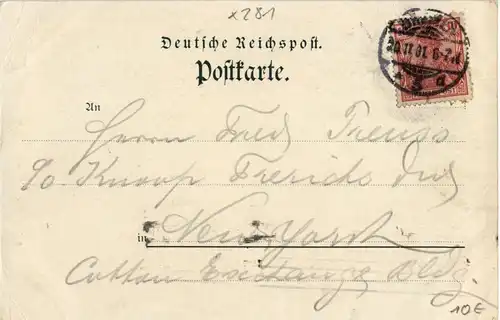 x281
Deutsche Reichspost.
Postkarte.
20.11.01. 6-7.N
3 a
An
Herrn Fred Treuss
c/o Knoop Frerichs
in New York
Cotton Exchange Bldg
10€